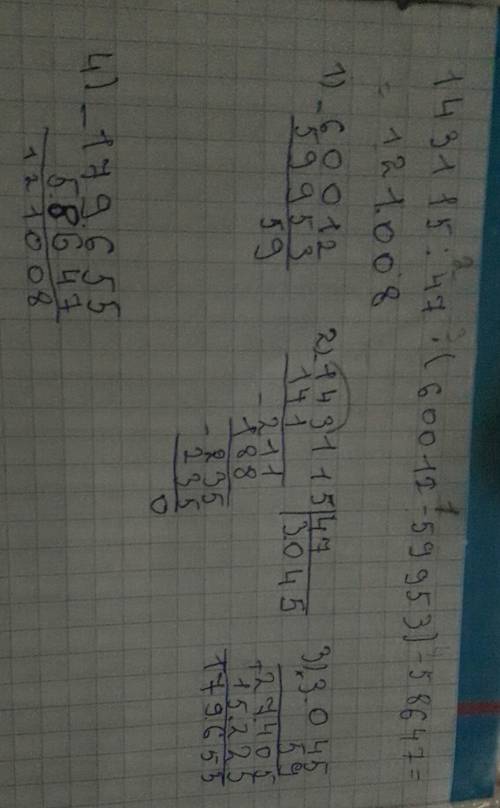 2 3 1
143115 : 47 · (60012 - 59953) - 58647 =
= 121.008
1) - 60012
59953
59
2) - 143115 | 47
141 3045
- 211
188
- 235
235
0
3) × 3.045
59
+ 27.405
15.225
179.655
4) - 179.655
58647
121008